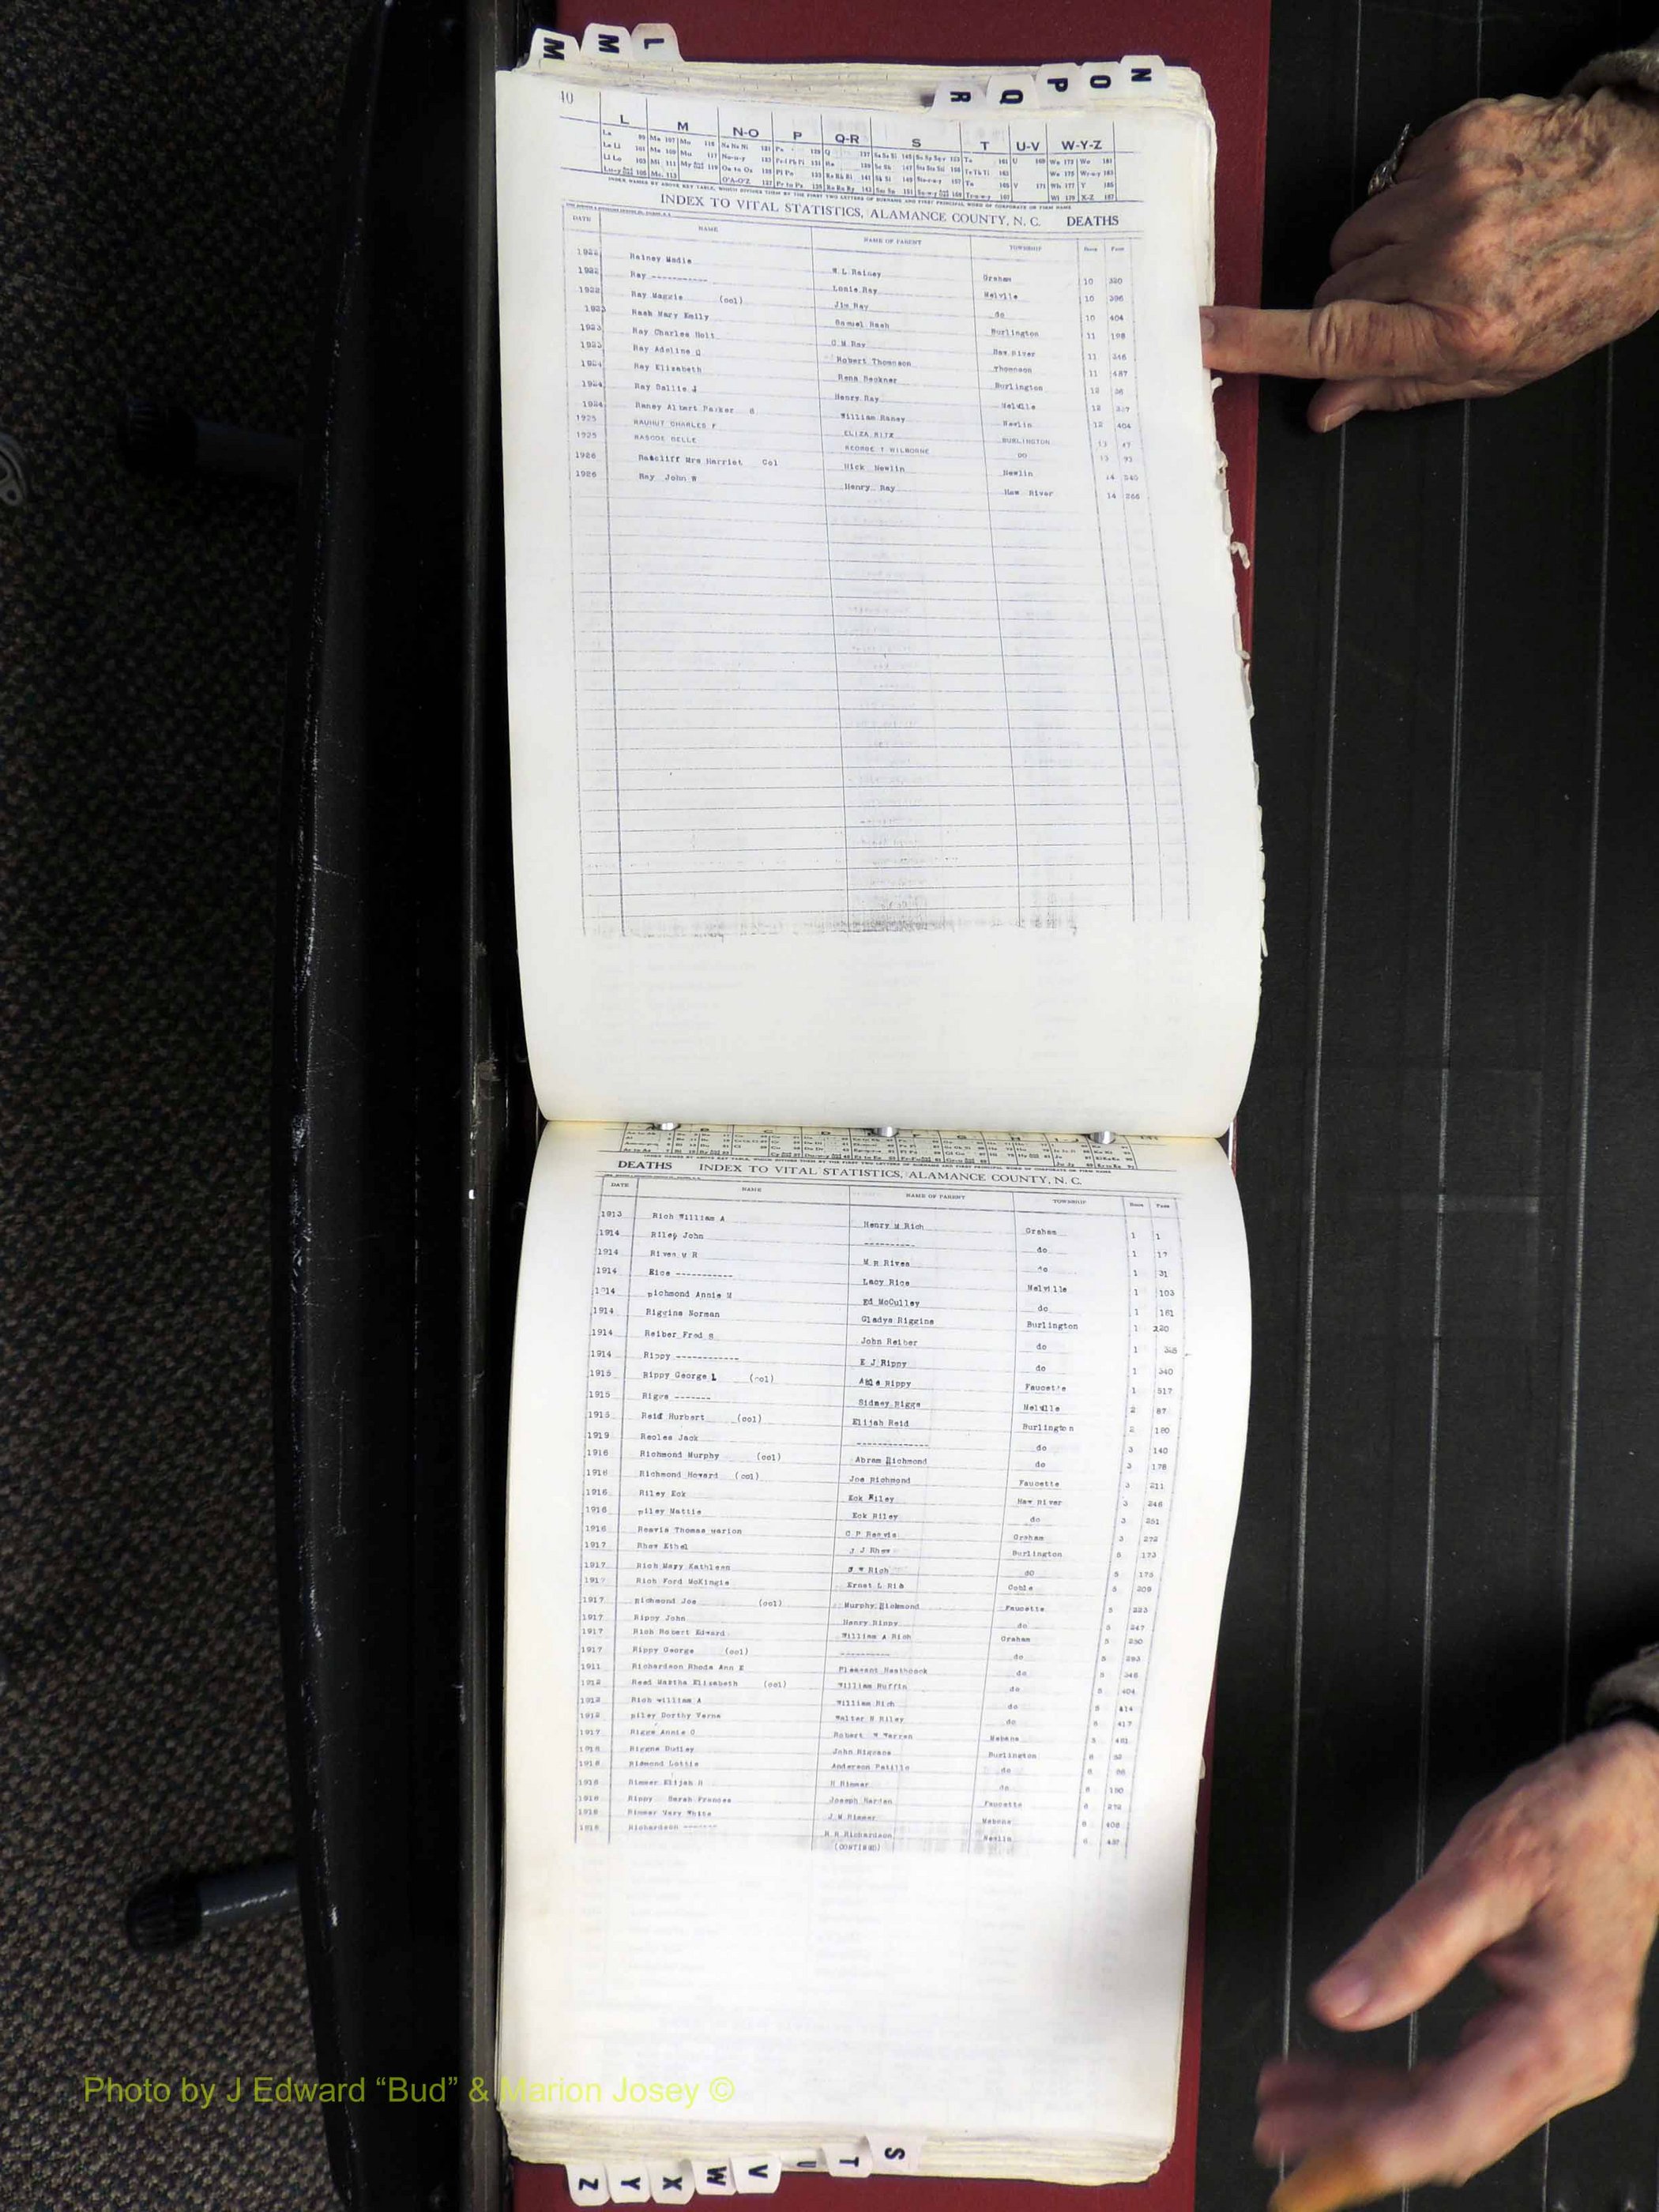 M M L
N O P Q R
40
L M N-O P Q-R S T U-V W-Y-Z
INDEX NAMES BY ABOVE KEY TABLE, WHICH DIVIDES THEM BY THE FIRST TWO LETTERS OF SURNAME AND FIRST PRINCIPAL WORD OF CORPORATE OR FIRM NAME
INDEX TO VITAL STATISTICS, ALAMANCE COUNTY, N. C. DEATHS
DATE NAME NAME OF PARENT TOWNSHIP Page
1922 Rainey Madie W L Rainey Graham 10 320
1922 Ray ----------- Louis Ray Melville 10 396
1922 Ray Maggie (col) Jim Ray do 10 404
1923 Rash Mary Emily Samuel Rash Burlington 11 198
1923 Ray Charles Holt C M Ray Haw River 11 246
1923 Ray Adeline Q Robert Thomnson Thomnson 11 487
1924 Ray Elizabeth Rena Beckner Burlington 12
1924 Ray Sallie J Henry Ray Melville 12
1924 Raney Albert Parker William Raney Newlin 12 404
1925 RAUHUT CHARLES F ELIZA RITZ BURLINGTON 13
1925 RASCOE BELLE GEORGE T WILBORNE DO 13
1926 Ratcliff Mrs Harriet Col Nick Newlin Newlin 14
1926 Ray John W Henry Ray Haw River 14 266
DEATHS INDEX TO VITAL STATISTICS, ALAMANCE COUNTY, N. C.
DATE NAME NAME OF PARENT TOWNSHIP Page
1913 Rich William A Henry M Rich Graham 1 1
1914 Riley John ---------- do 1 17
1914 Rives M R M R Rives do 1 31
1914 Rice ----------- Lacy Rice Melville 1 103
1914 Richmond Annie M Ed McCulley do 1 161
1914 Riggins Norman Gladys Riggins Burlington 1 220
1914 Reiber Fred S John Reiber do 1
1914 Rippy ------------ E J Rippy do 1 340
1915 Rippy George L (col) Able Rippy Faucette 1 517
1915 Riggs ------- Sidney Riggs Melville 2 87
1915 Reid Hurbert (col) Elijah Reid Burlington 2 180
1919 Recles Jack -------------- do 3 140
1916 Richmond Murphy (col) Abram Richmond do 3 178
1916 Richmond Howard (col) Joe Richmond Faucette 3 211
1916 Riley Eck Eck Riley Haw River 3 246
1916 Riley Mattie Eck Riley do 3 251
1916 Reavis Thomas Marion C P Reavis Graham 3 272
1917 Rhew Ethel J J Rhew Burlington 5 173
1917 Rich Mary Kathleen Rich do 5 175
1917 Rich Ford McKingie Ernest L Rich Coble 5 209
1917 Richmond Joe (col) Murphy Richmond Faucette 5 223
1917 Rippy John Henry Rippy do 5 247
1917 Rich Robert Edward William A Rich Graham 5 250
1917 Rippy George (col) ---------- do 5 293
1911 Richardson Rhoda Ann E Pleasent Heathcock do 5 346
1912 Reed Martha Elizabeth (col) William Ruffin do 5 404
1912 Rich William A William Rich do 5 414
1912 Riley Dorthy Verna Walter N Riley do 5 417
1917 Riggs Annie O Robert W Warren Mebane 5 481
1918 Riggns Dudley John Riggans Burlington 6
1918 Ridmond Lottie Anderson Patillo do 6
1918 Rimmer Elijah H H Rimmer do 6 190
1918 Rippy Sarah Frances Joseph Harden Faucette 6 272
1918 Rimmer Mary White J M Rimmer Mebane 6 408
1918 Richardson ------- R R Richardson Newlin 6
(CONTINED)
Photo by J Edward “Bud” & Marion Josey ©
Z Y X W V U T S